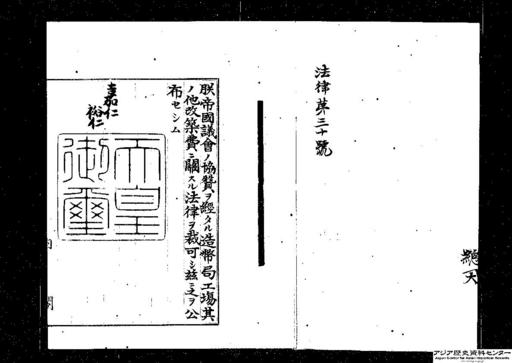 法律第三十號
朕帝國議會ノ協賛ヲ經タル造幣局工場其
ノ他改築費ニ關スル法律ヲ裁可シ茲ニ之ヲ公
布セシム
嘉仁
裕仁
天皇
御璽
アジア歴史資料センター
Japan Center for Asian Historical Records